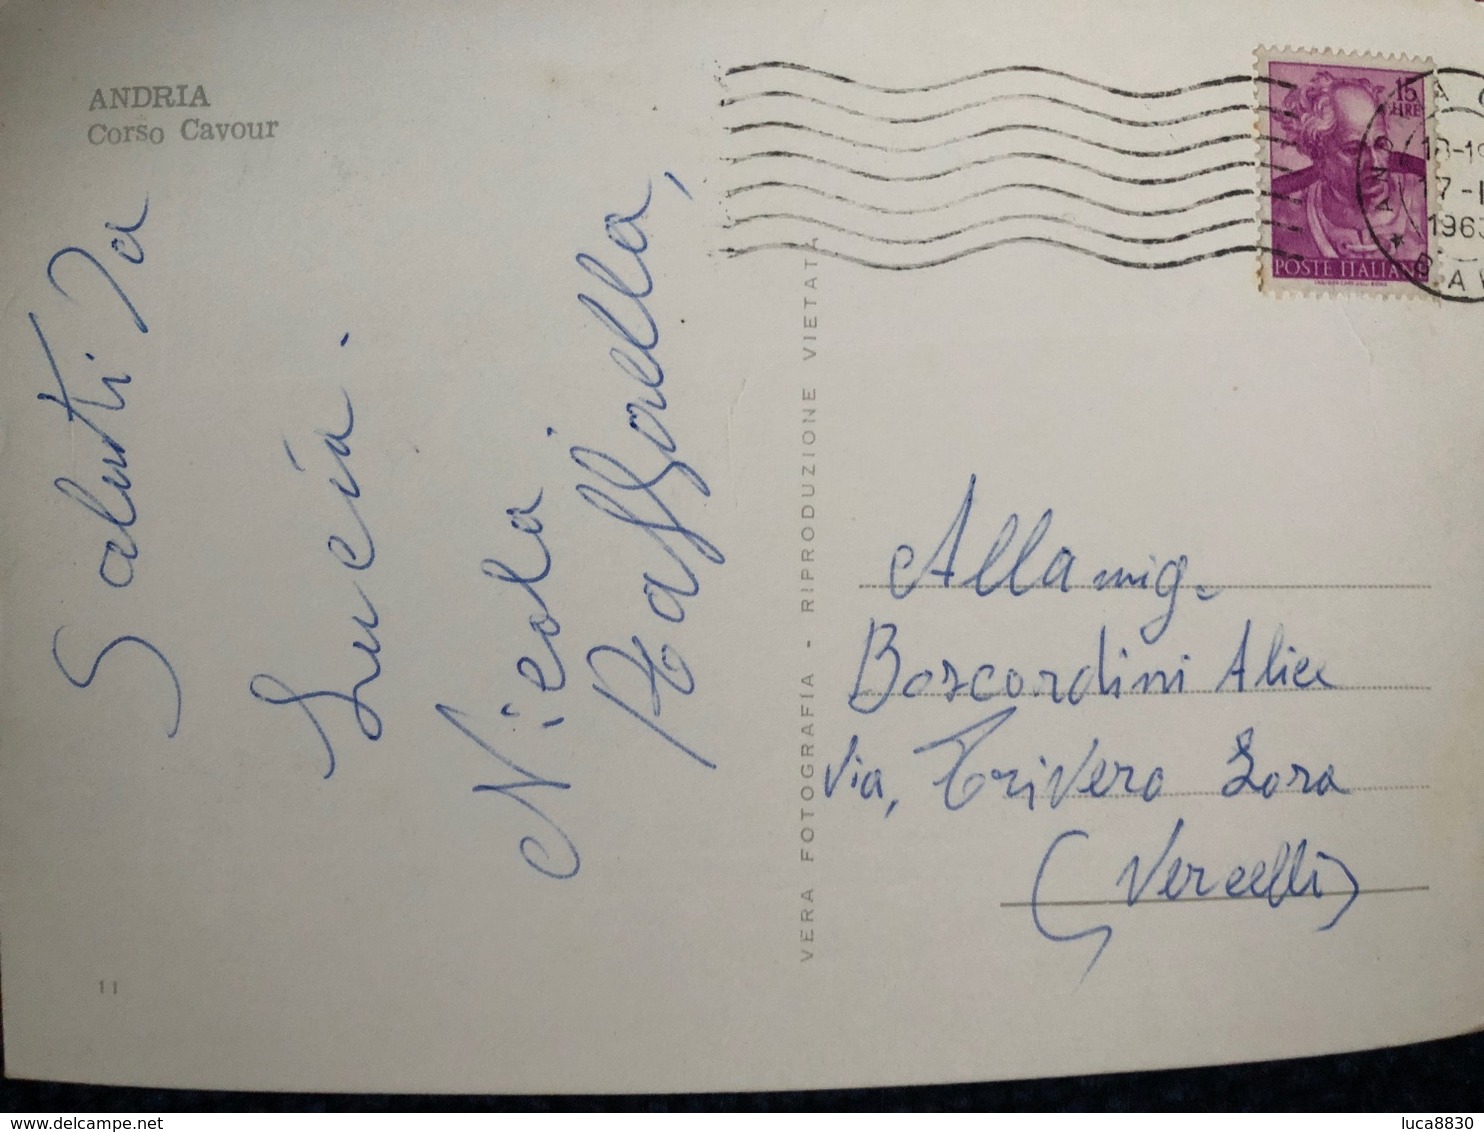 ANDRIA
Corso Cavour
Saluti Da
Lucia.
Nicola
Raffaella,
VERA FOTOGRAFIA - RIPRODUZIONE VIETATA
15
LIRE
POSTE ITALIANE
18-19
17-1
1963
BA
Allamig.
Boscardini Alice
Via, Trivero Zora
(Vercelli)
11
delcampe.net
luca8830